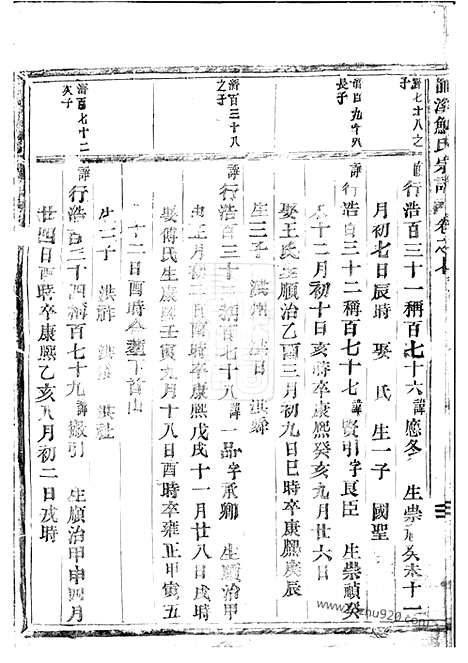 鮑氏宗譜 卷之七
濟七十八之子
行浩百三十一稱百七十六諱應冬 生崇禎癸未十一
月初七日辰時 娶 氏 生一子 國聖
長子
行浩百三十二稱百七十七諱賢引字良臣 生崇禎癸
十二月初十日亥時卒康熙癸亥九月廿六日
娶王氏生順治乙酉三月初九日巳時卒康熙庚辰
生三子
濟百三十八之子
行浩百三十三稱百七十八諱一品字承卿 生順治甲
正月初 日酉時卒康熙戊戌十一月廿八日戌時
娶傅氏生康熙壬寅九月十八日酉時卒雍正甲寅五
十二日酉時 下首山
生二子 洪祚 洪社
濟百七十二次子
行浩百三十四稱百七十九諱 引 生順治甲申四月
廿四日酉時卒康熙乙亥八月初二日戌時